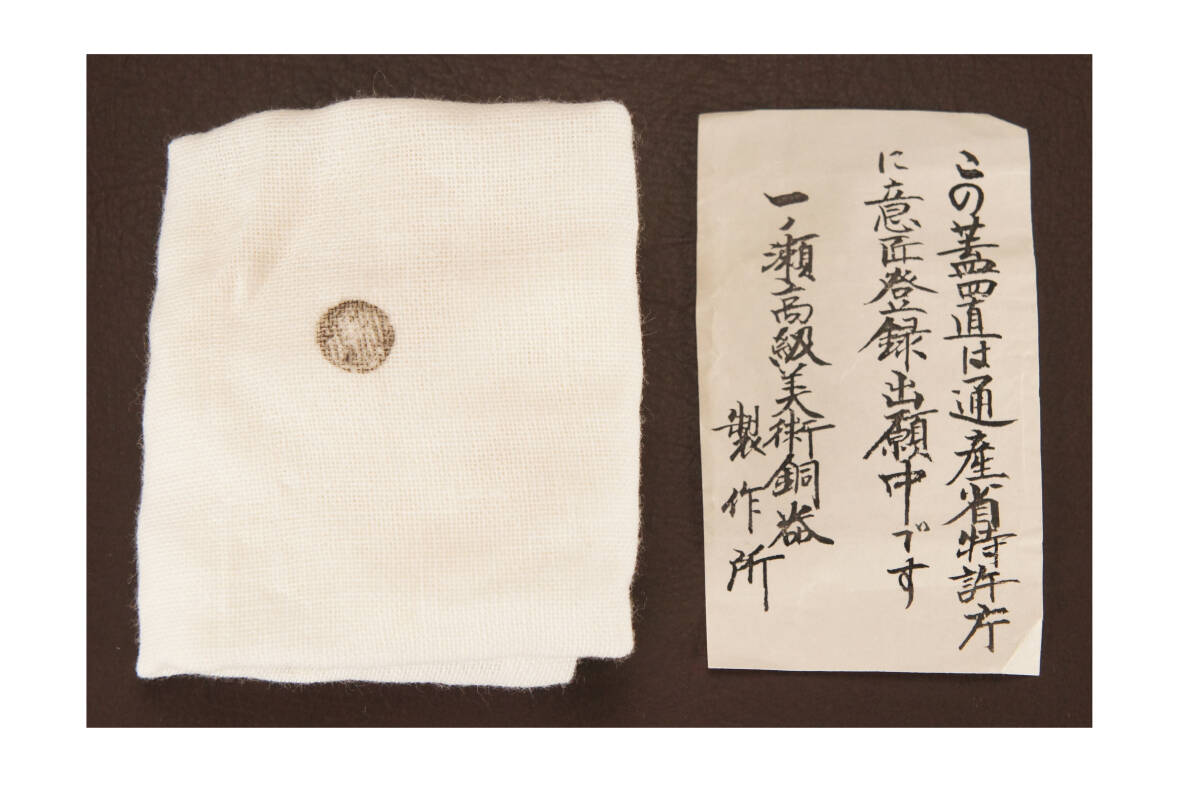 この蓋置は通産省特許庁
に意匠登録出願中です
一ノ瀬高級美術銅器
製作所